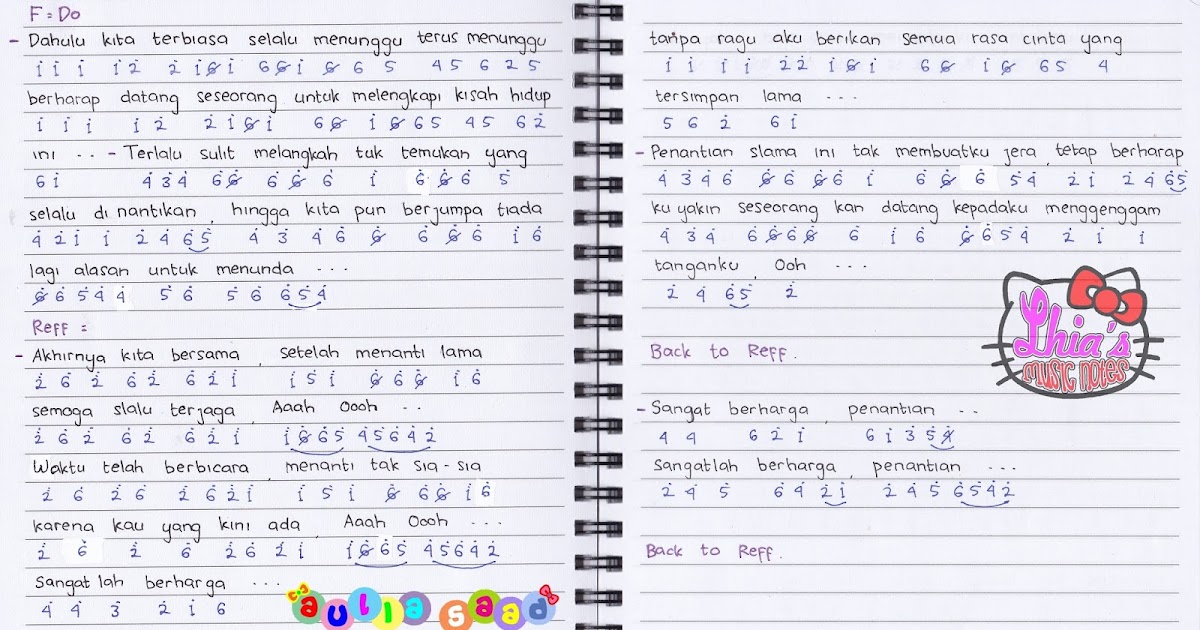 F = Do
- Dahulu kita terbiasa selalu menunggu terus menunggu
i i i i 2̇ 2̇ i 6̸ i 6 6̸ i 6̸ 6 5 4 5 6 2 5
berharap datang seseorang untuk melengkapi kisah hidup
i i i i 2̇ 2̇ i 6̸ i 6 6̸ i 6̸ 6 5 4 5 6 2̇
ini .. - Terlalu sulit melangkah tuk temukan yang
6 i 4̇ 3̇ 4̇ 6̇ 6̸̇ 6̇ 6̸̇ 6̇ i 6̇ 6̸̇ 6̇ 5̇
selalu di nantikan , hingga kita pun berjumpa tiada
4̇ 2̇ i i 2̇ 4̇ 6̇ 5̇ 4̇ 3̇ 4̇ 6̇ 6̸̇ 6̇ 6̸̇ 6̇ i 6̇
lagi alasan untuk menunda ...
6̸̇ 6̇ 5̇ 4̇ 4̇ 5̇ 6̇ 5̇ 6̇ 6̇ 5̇ 4̇
Reff =
- Akhirnya kita bersama , setelah menanti lama
2̇ 6̇ 2̇ 6̇ 2̇ 6̇ 2̇ i i 5̇ i 6̸̇ 6̇ 6̸̇ i 6̇
semoga slalu terjaga , Aaah Oooh ..
2̇ 6̇ 2̇ 6̇ 2̇ 6̇ 2̇ i i 6̸̇ 6̇ 5̇ 4̇ 5̇ 6̇ 4̇ 2̇
Waktu telah berbicara , menanti tak sia-sia
2̇ 6̇ 2̇ 6̇ 2̇ 6̇ 2̇ i i 5̇ i 6̸̇ 6̇ 6̸̇ i 6̇
karena kau yang kini ada , Aaah Oooh ...
2̇ 6̇ 2̇ 6̇ 2̇ 6̇ 2̇ i i 6̸̇ 6̇ 5̇ 4̇ 5̇ 6̇ 4̇ 2̇
Sangat lah berharga ...
4̇ 4̇ 3̇ 2̇ i 6
aulia saad
tanpa ragu aku berikan semua rasa cinta yang
i i i i 2̇ 2̇ i 6̸ i 6 6̸ i 6̸ 6 5 4
tersimpan lama ...
5 6 2̇ 6 i
- Penantian slama ini tak membuatku jera , tetap berharap
4̇ 3̇ 4̇ 6̇ 6̸̇ 6̇ 6̸̇ 6̇ i 6̇ 6̸̇ 6̇ 5̇ 4̇ 2̇ i 2̇ 4̇ 6̇ 5̇
ku yakin seseorang kan datang kepadaku menggenggam
4̇ 3̇ 4̇ 6̇ 6̸̇ 6̇ 6̸̇ 6̇ i 6̇ 6̸̇ 6̇ 5̇ 4̇ 2̇ i i
tanganku , Ooh ...
2̇ 4̇ 6̇ 5̇ 2̇
Lhia's
MUSIC NOTES
Back to Reff.
- Sangat berharga , penantian ..
4̇ 4̇ 6 2̇ i 6 i 3̇ 5̇ 4̸̇
Sangatlah berharga , penantian ...
2̇ 4̇ 5̇ 6̇ 4̇ 2̇ i 2̇ 4̇ 5̇ 6̇ 5̇ 4̇ 2̇
Back to Reff.